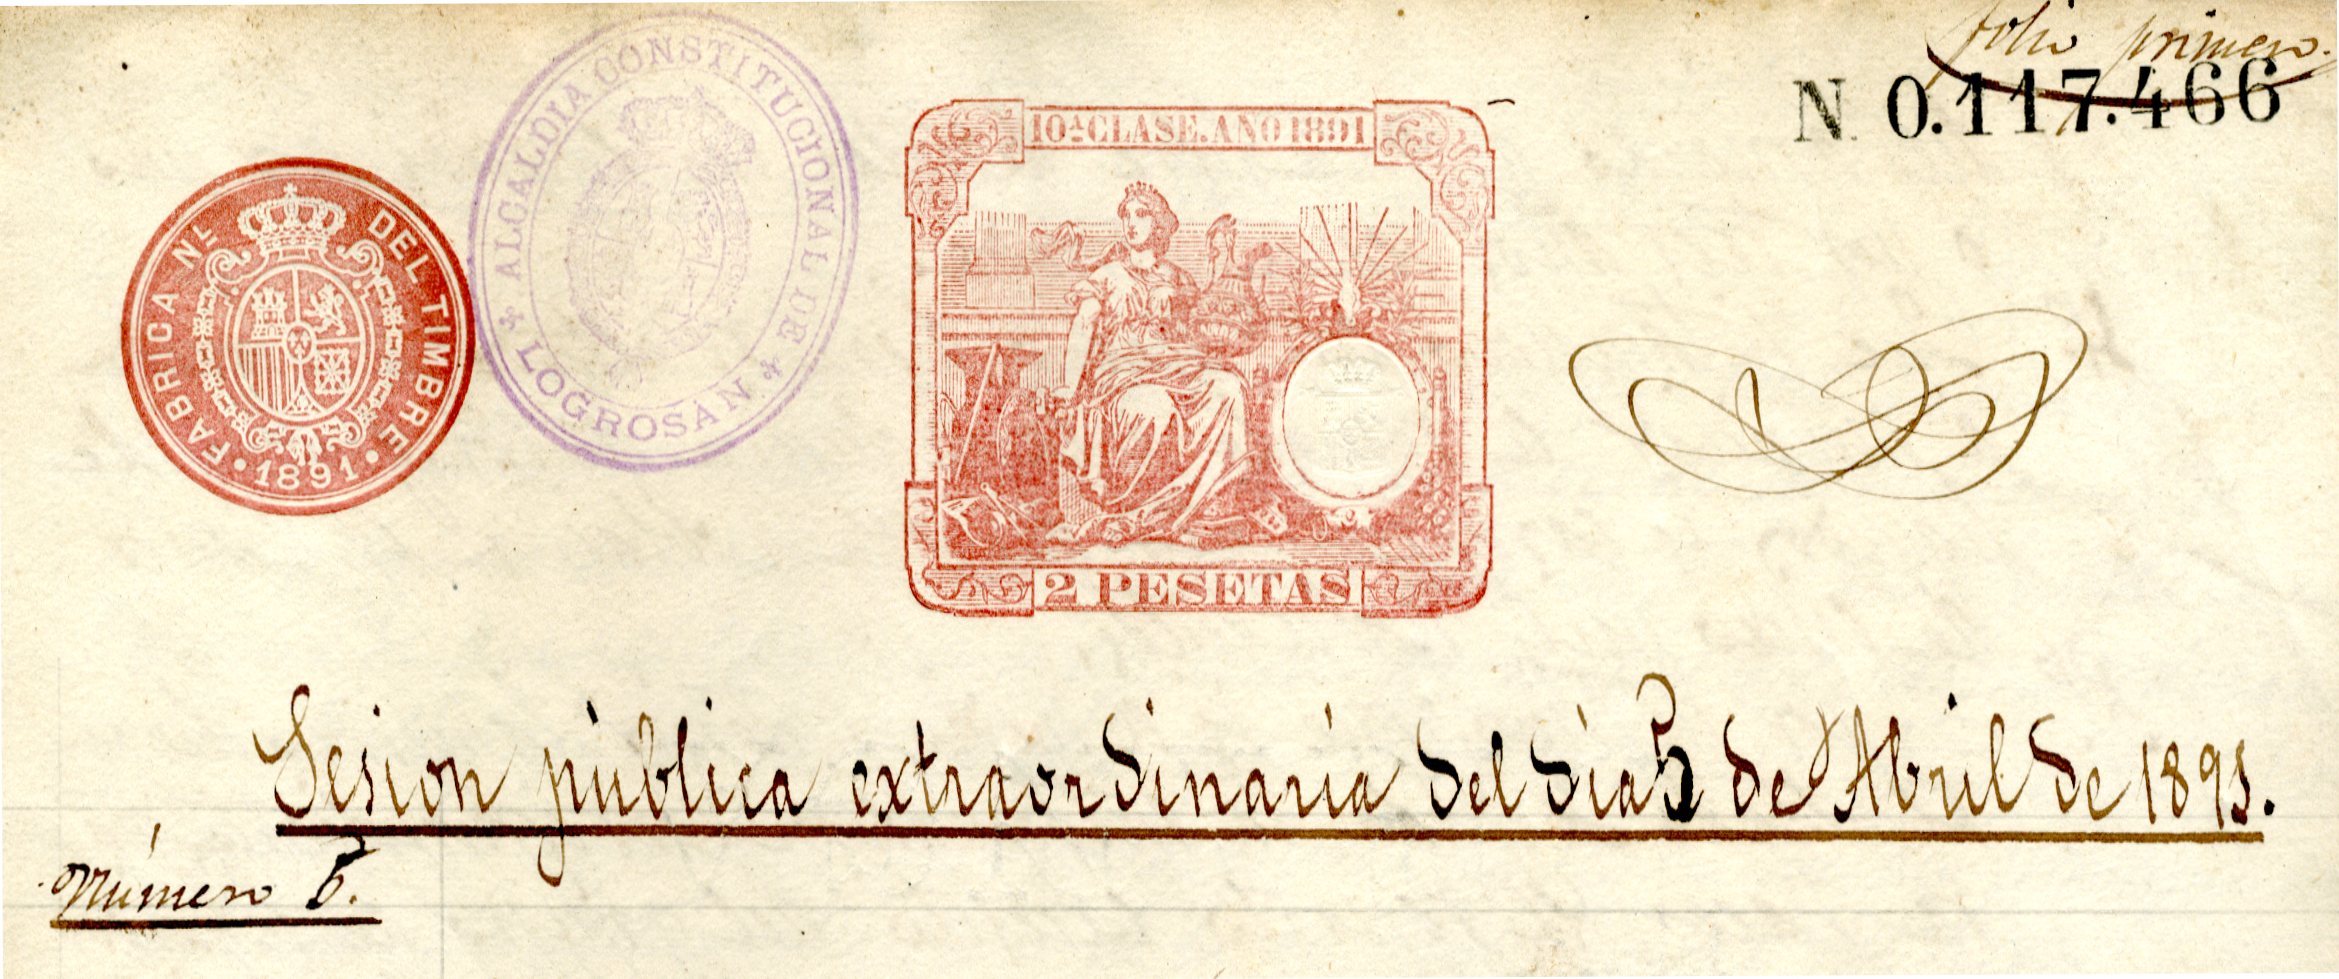 folio primero.
N. 0.117.466
10ª CLASE. AÑO 1891
FABRICA NL DEL TIMBRE
· 1891 ·
ALCALDIA CONSTITUCIONAL DE
LOGROSÁN.
2 PESETAS
Sesion pública extraordinaria del dia 5 de Abril de 1891.
Número 5.